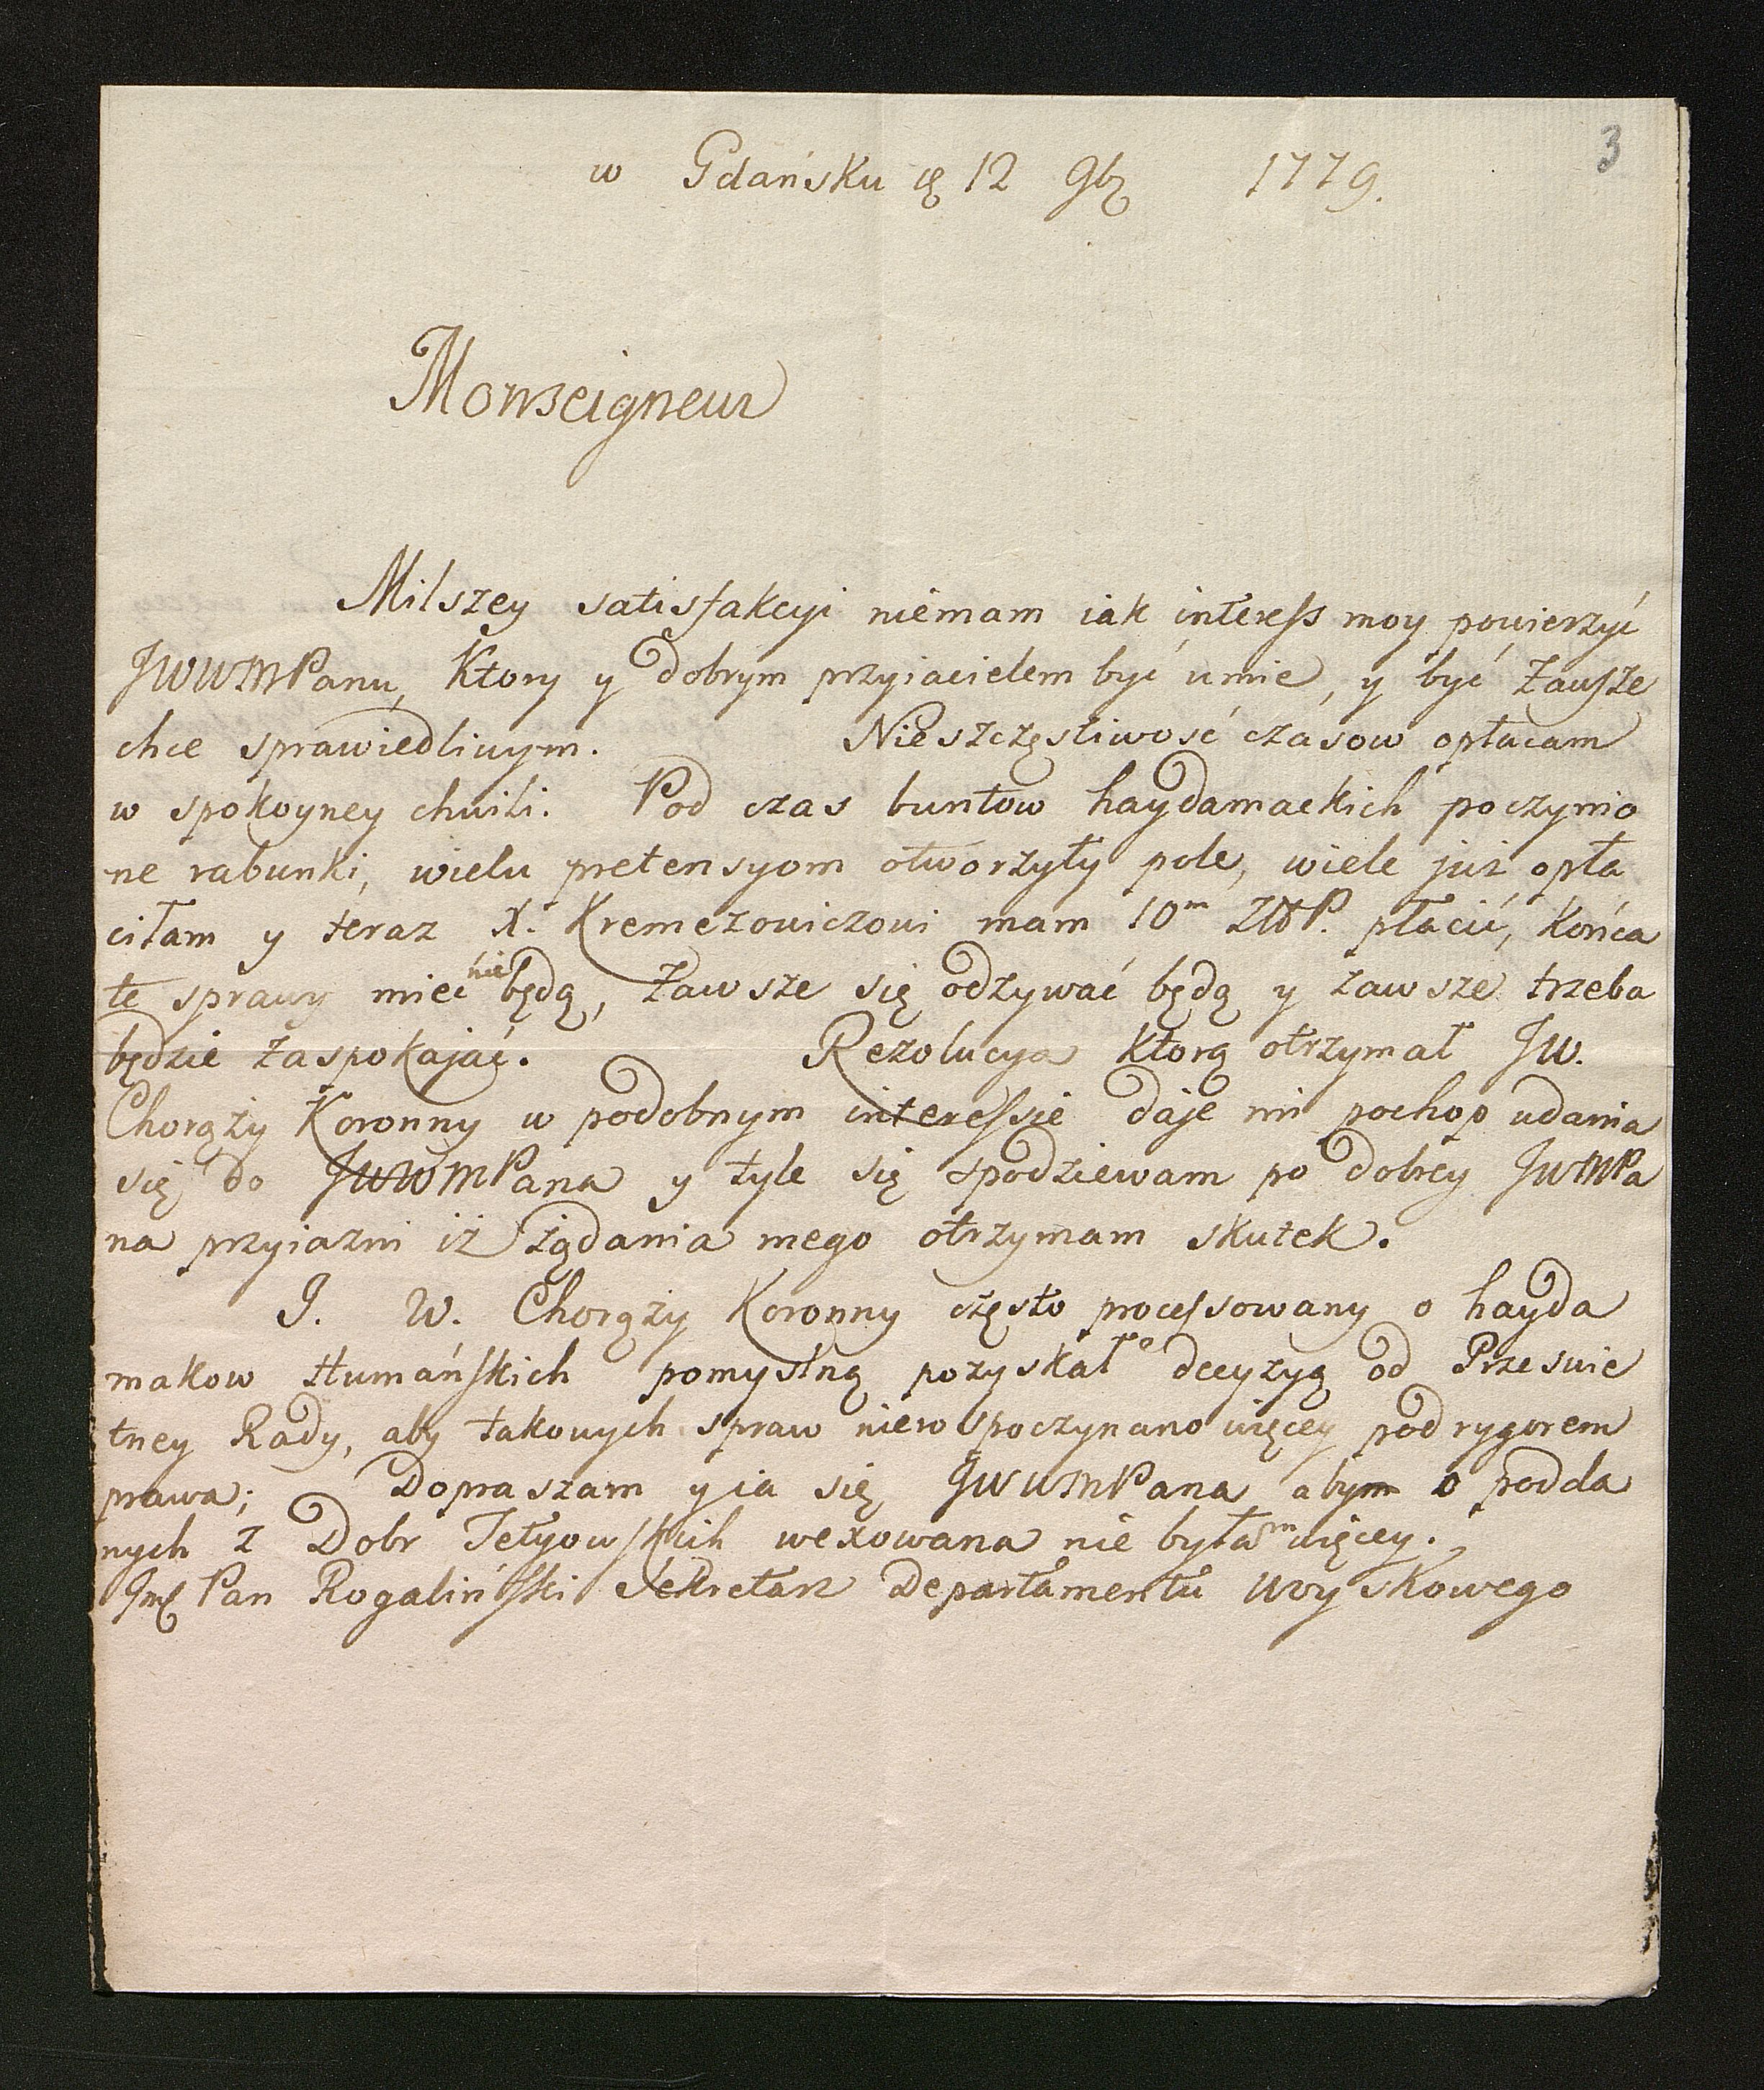 3
w Gdańsku 12 9b 1779.
Monseigneur
Milszey satisfakcyi niemam iak interess moy powierzyć
JWWMPanu, Ktory y dobrym przyiacielem być umie, y być zawsze
chce sprawiedliwym. Nieszczęsliwość czasow opłacam
w spokoyney chwili. Pod czas buntow haydamackich poczynio
ne rabunki, wielu pretensyom otworzyły pole, wiele już opła
ciłam y teraz X. Kremezowiczowi mam 10m ZłłP. płacić, końca
te sprawy mieć nie będą, zawsze się odzywać będą y zawsze trzeba
będzie zaspokajać. Rezolucya ktorą otrzymał JW.
Chorąży Koronny w podobnym interessie daje mi pochop udania
się do JWWMPana y tyle się spodziewam po dobrey JWMPa
na przyiazni iż żądania mego otrzymam skutek.
J. W. Chorąży Koronny często processowany o hayda
makow Humańskich pomyslną pozyskał decyzyą od Przeswie
tney Rady, aby takowych spraw niewspoczynano więcey pod rygorem
prawa; Dopraszam y ia się JWWMPana abym o podda
nych z Dobr Tetyowskich wexowana nie byłam więcey.
Jmć Pan Rogaliński Sekretarz Departamentu Woyskowego